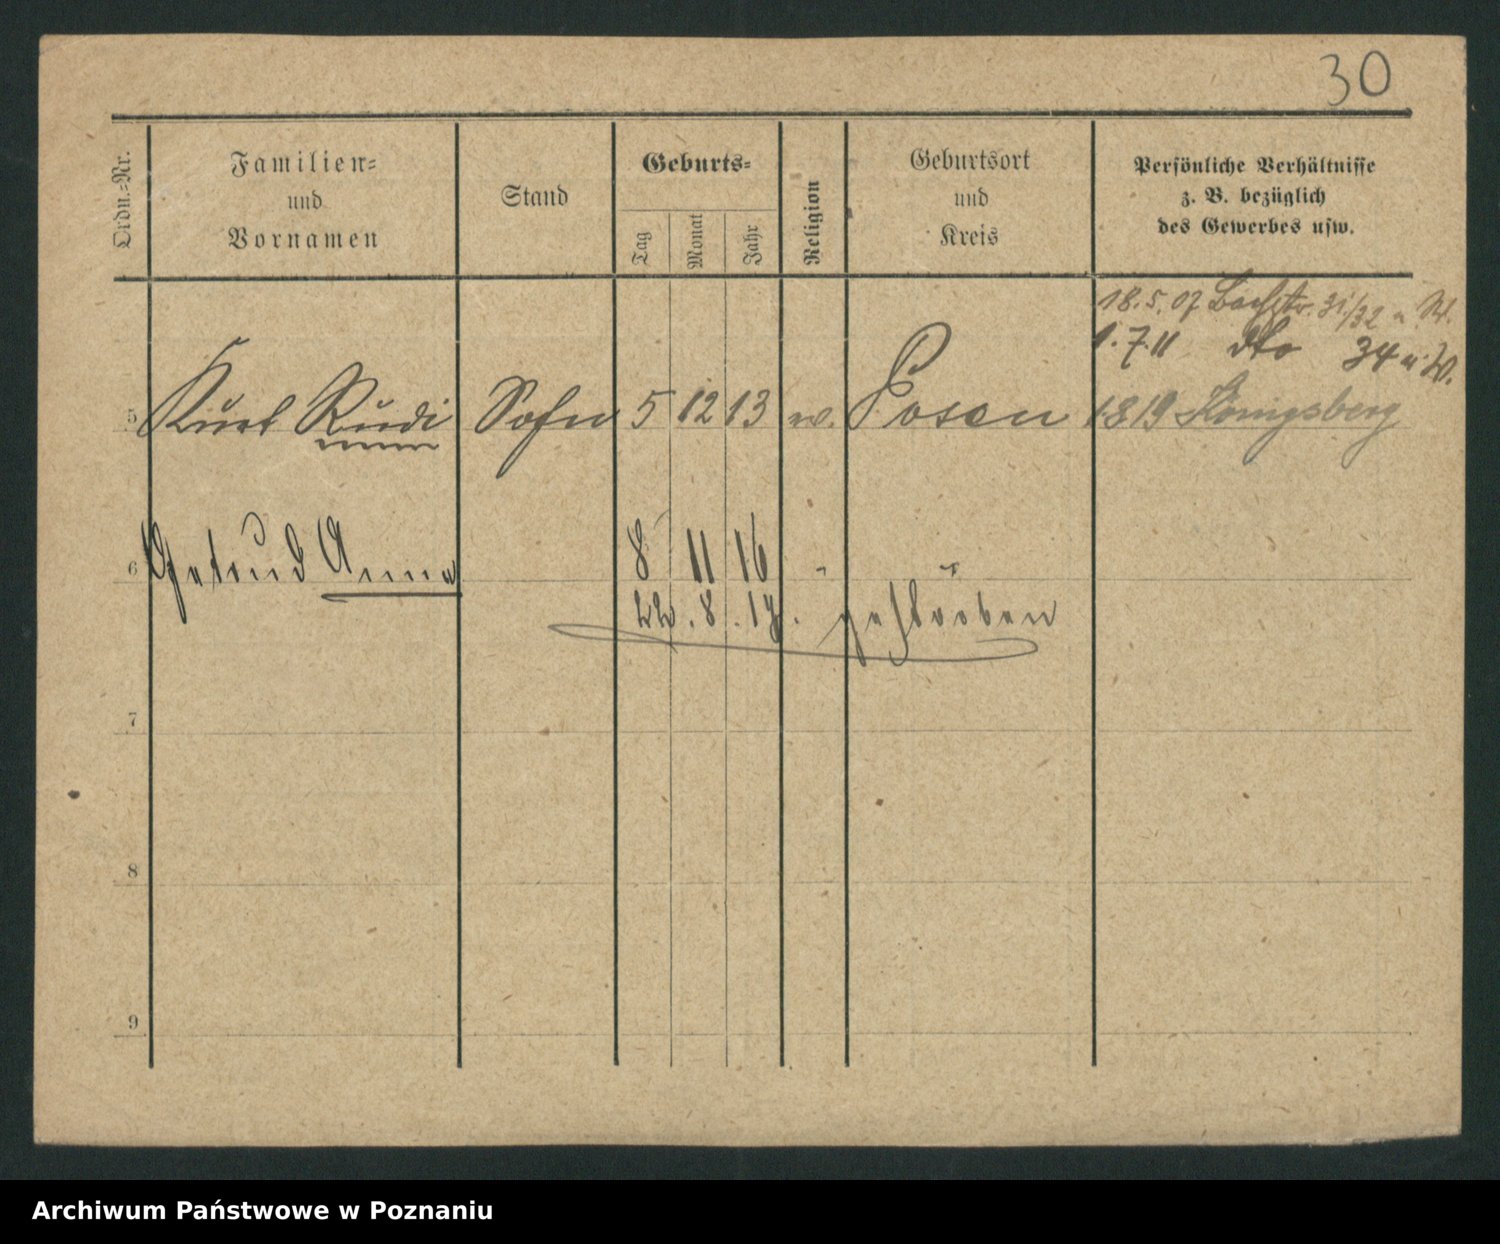 30
Ordn.-Nr.
Familien-
und
Vornamen
Stand
Geburts-
Tag
Monat
Jahr
Religion
Geburtsort
und
Kreis
Persönliche Verhältnisse
z. B. bezüglich
des Gewerbes usw.
18.5.07 Bachstr. 31/32
1.7.11 dto 34
5 Kurt Rudi Sohn 5 12 13 Posen Königsberg
6 Gertrud Anna 8 11 16 "
22. 8. 17. gestorben
7
8
9
Archiwum Państwowe w Poznaniu